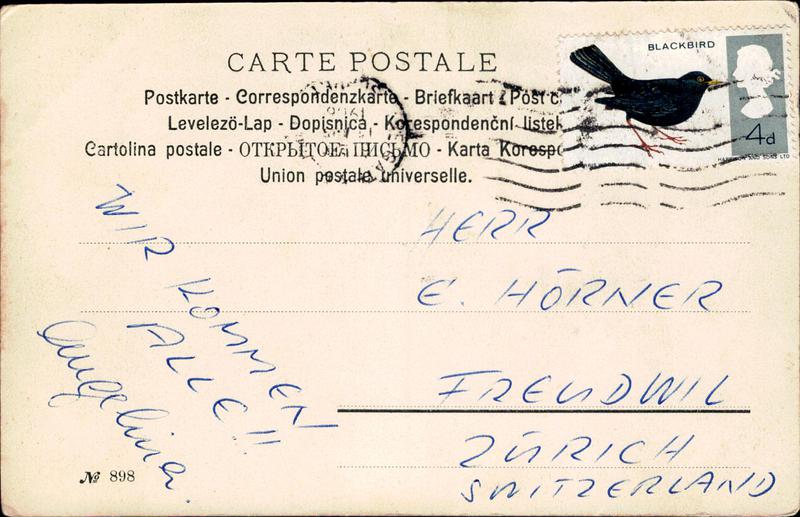 CARTE POSTALE
Postkarte - Correspondenzkarte - Briefkaart - Post c
Levelezö-Lap - Dopisnica - Korespondenční listek
Cartolina postale - ОТКРЫТОЕ ПИСЬМО - Karta Korespo
Union postale universelle.
BLACKBIRD
4d
HARRISON AND SONS LTD
WIR KOMMEN
ALLE!!
Angelina.
HERR
E. HÖRNER
FREUDWIL
ZÜRICH
SWITZERLAND
№ 898